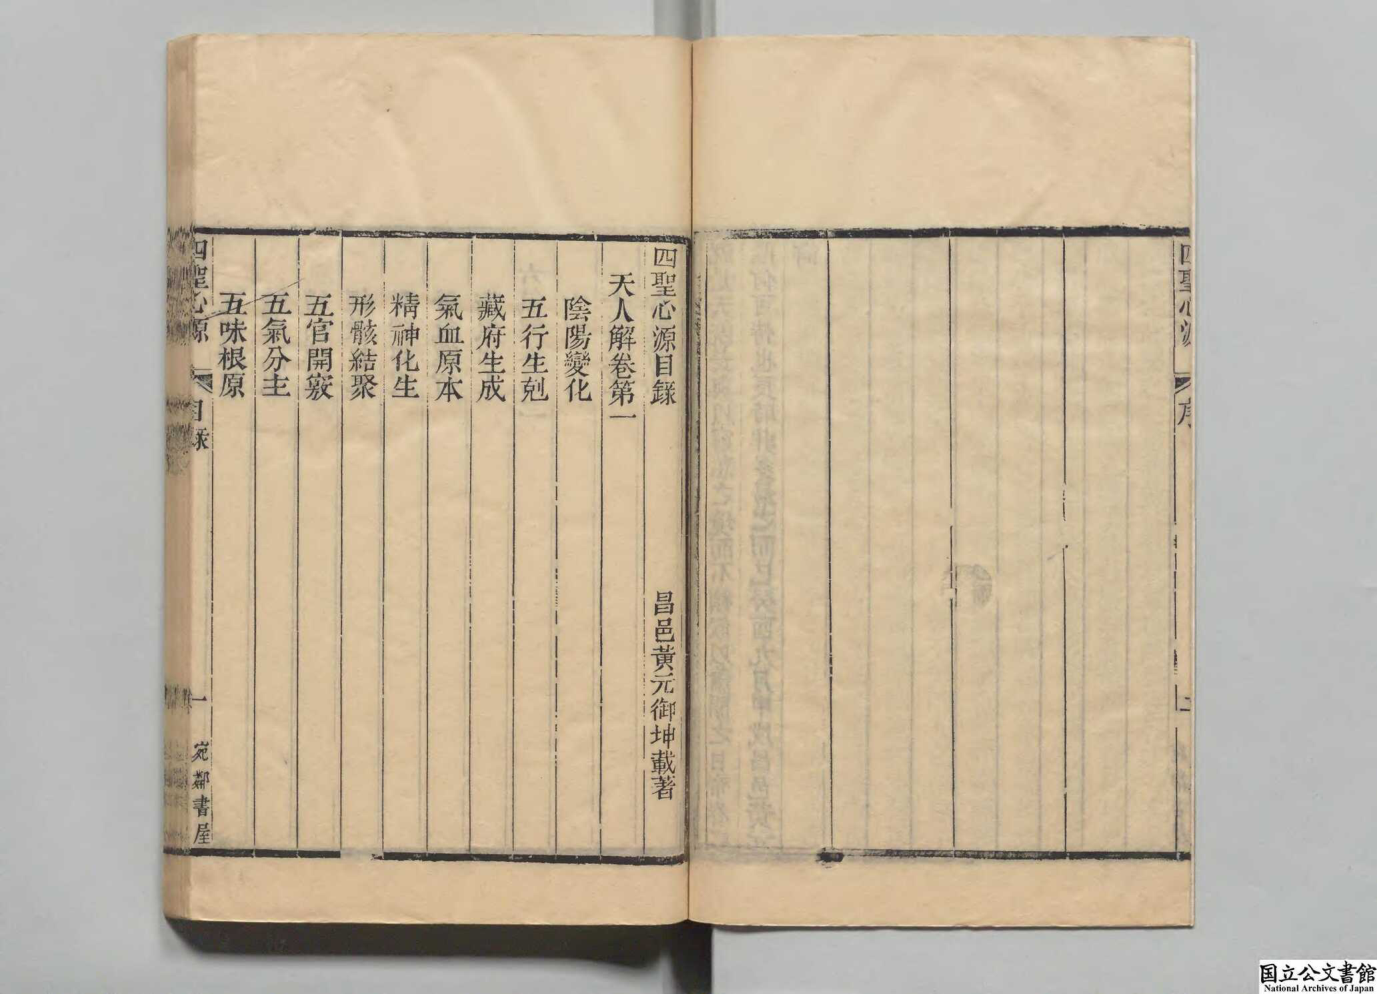 四聖心源
序
四聖心源目錄
昌邑黃元御坤載著
天人解卷第一
陰陽變化
五行生剋
藏府生成
氣血原本
精神化生
形骸結聚
五官開竅
五氣分主
五味根原
四聖心源
目錄
一
宛鄰書屋
国立公文書館
National Archives of Japan